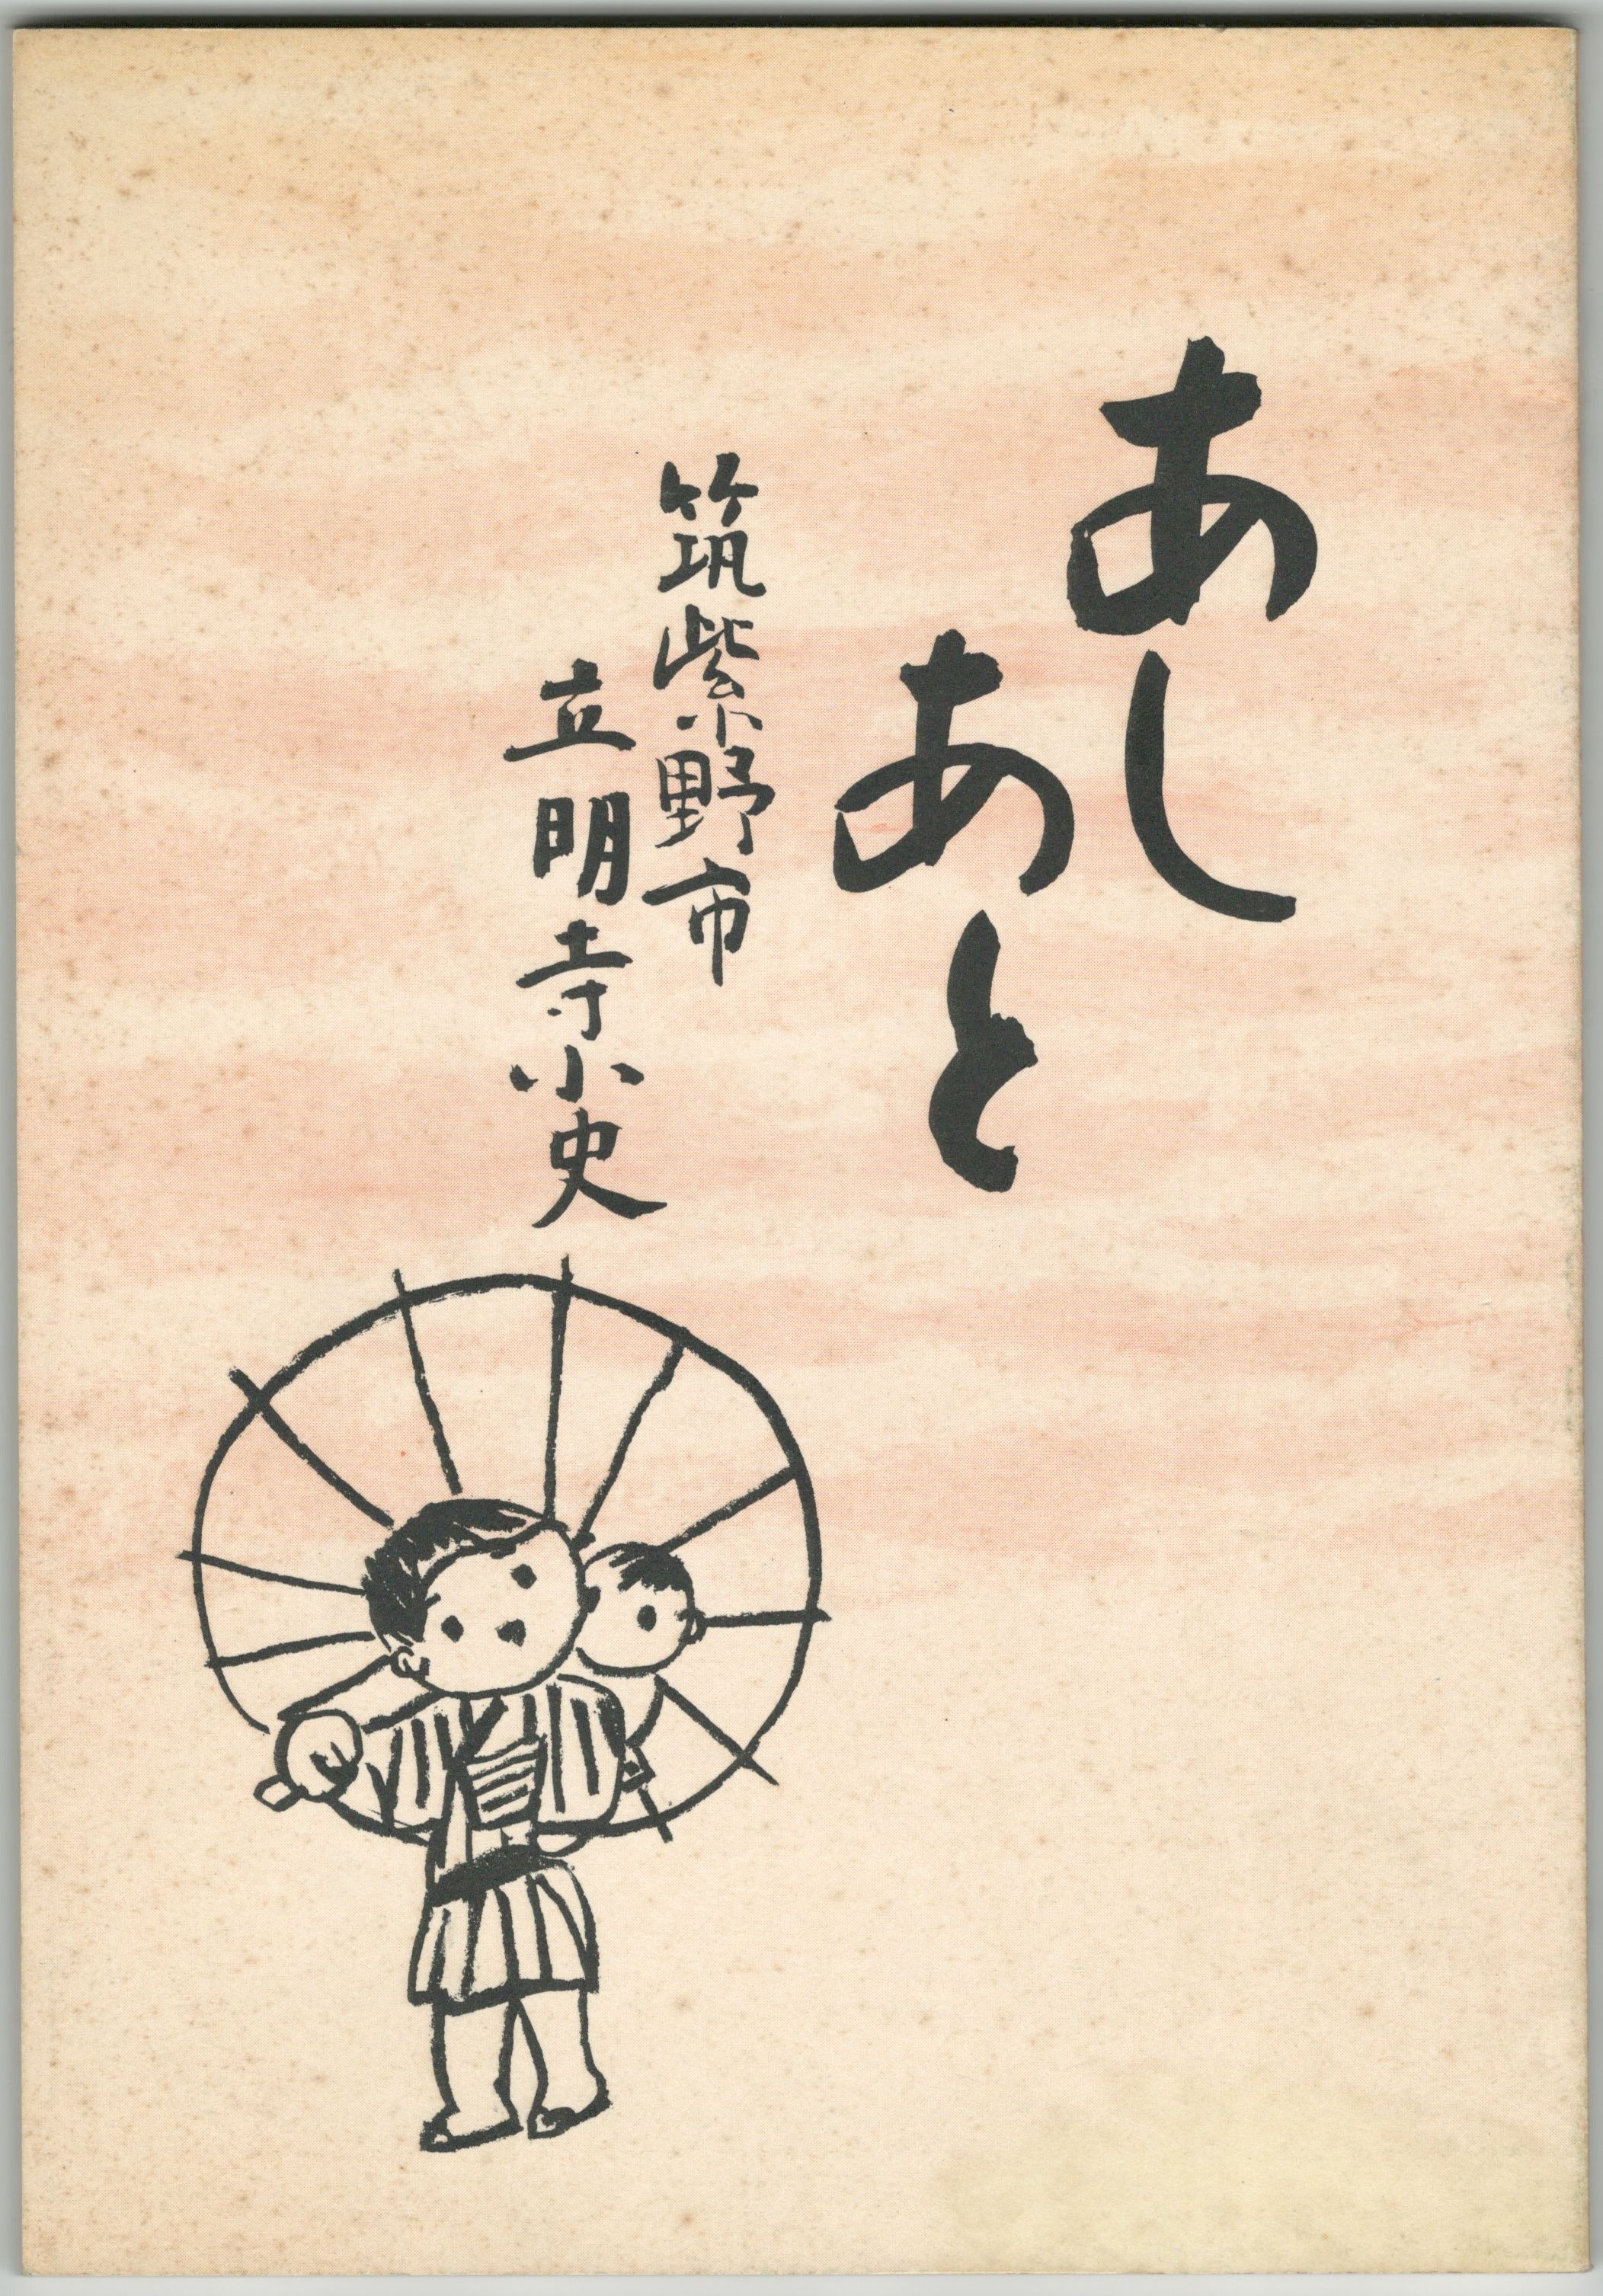 あし
あと
筑紫野市
立明寺小史